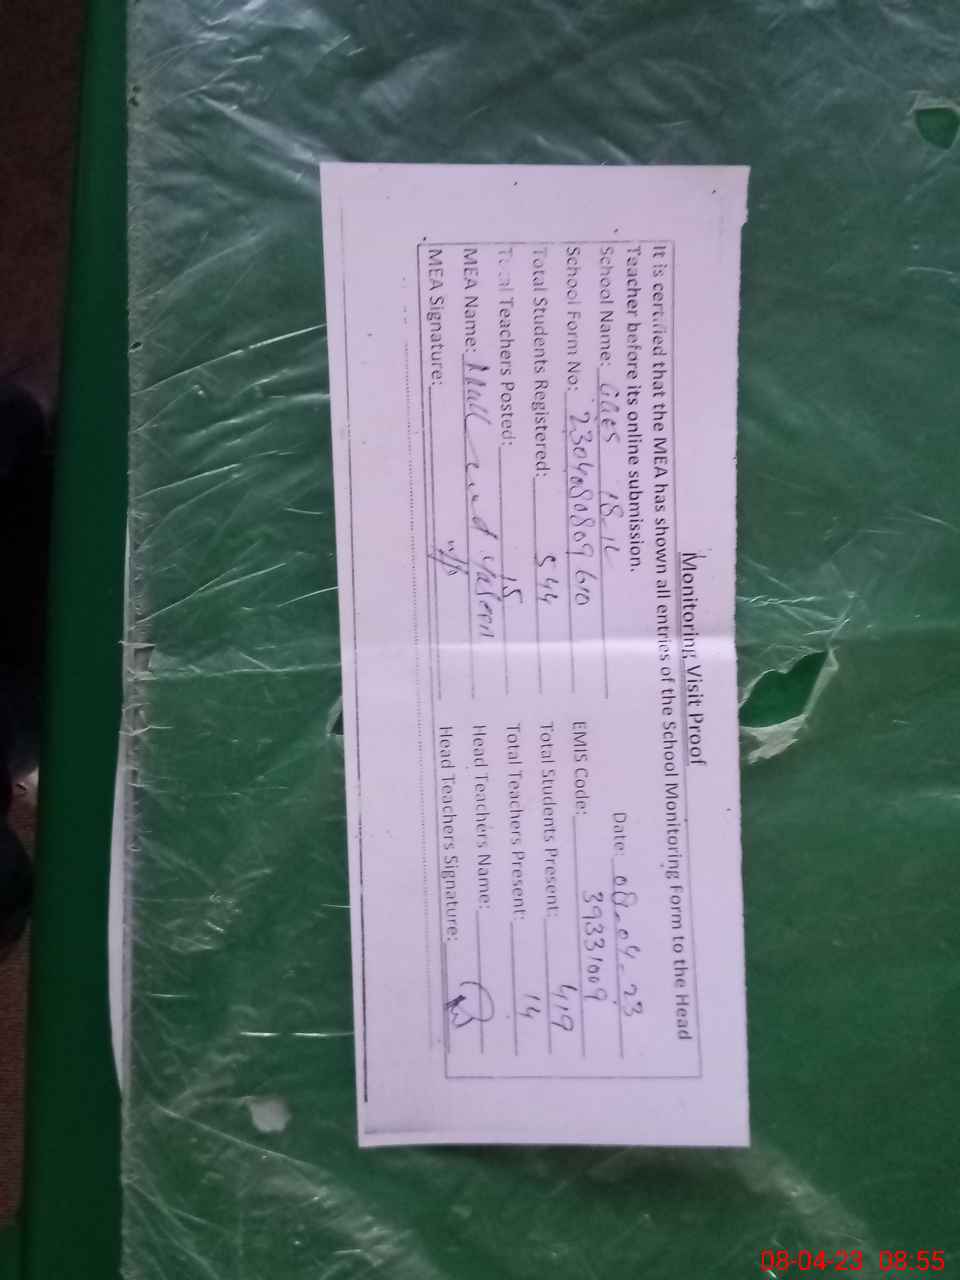 Monitoring Visit Proof
It is certified that the MEA has shown all entries of the School Monitoring Form to the Head
Teacher before its online submission.
Date: 08-04-23
School Name: GGES 18-1L
School Form No: 2304080809610 EMIS Code: 39331009
Total Students Registered: 544 Total Students Present: 419
Total Teachers Posted: 15 Total Teachers Present: 14
MEA Name: Yaseen Head Teachers Name:
MEA Signature: Head Teachers Signature:
08-04-23 08:55